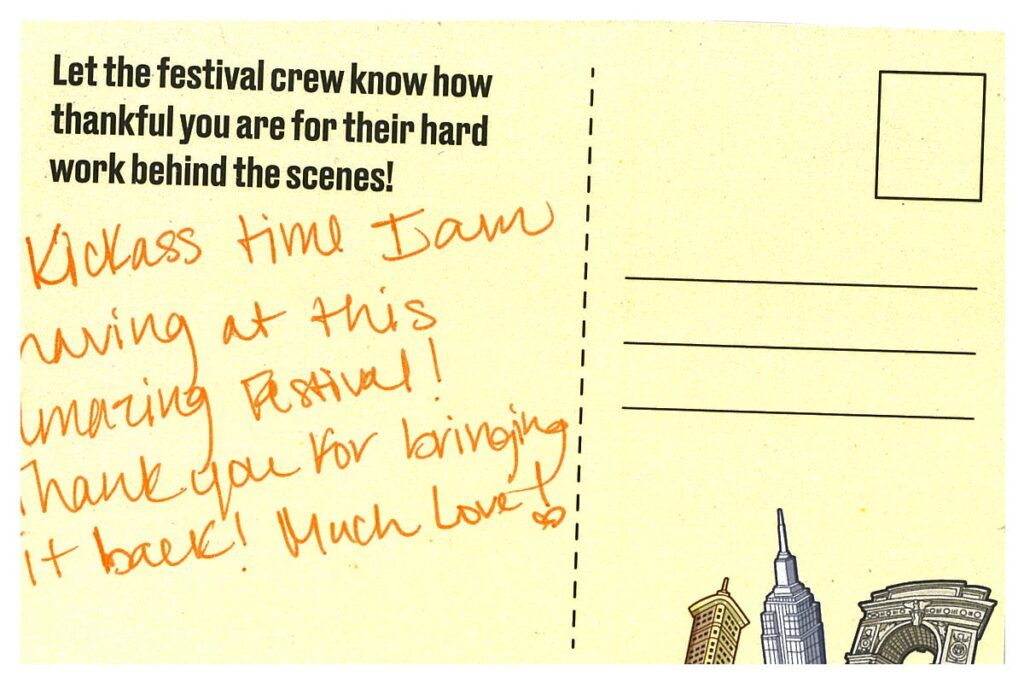 Let the festival crew know how
thankful you are for their hard
work behind the scenes!
Kickass time I am
having at this
amazing Festival!
Thank you for bringing
it back! Much Love!